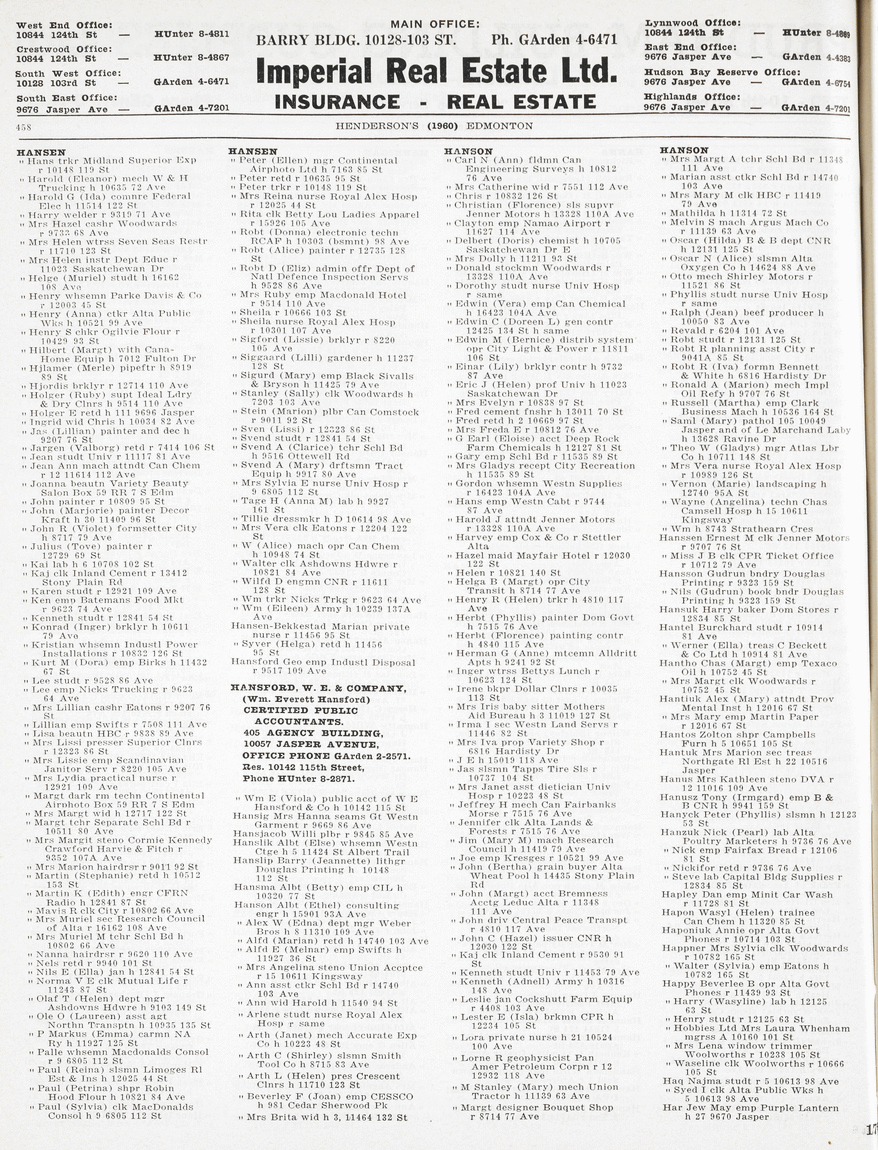 West End Office:
10844 124th St — HUnter 8-4811
Crestwood Office:
10844 124th St — HUnter 8-4867
South West Office:
10128 103rd St — GArden 4-6471
South East Office:
9676 Jasper Ave — GArden 4-7201
MAIN OFFICE:
BARRY BLDG. 10128-103 ST. Ph. GArden 4-6471
Imperial Real Estate Ltd.
INSURANCE - REAL ESTATE
Lynnwood Office:
10844 124th St — HUnter 8-4869
East End Office:
9676 Jasper Ave — GArden 4-4383
Hudson Bay Reserve Office:
9676 Jasper Ave — GArden 4-6754
Highlands Office:
9676 Jasper Ave — GArden 4-7201
458 HENDERSON'S (1960) EDMONTON
HANSEN
" Hans trkr Midland Superior Exp
r 10148 119 St
" Harold (Eleanor) mech W & H
Trucking h 10635 72 Ave
" Harold G (Ida) comnre Federal
Elec h 11514 122 St
" Harry welder r 9319 71 Ave
" Mrs Hazel cashr Woodwards
r 9733 68 Ave
" Mrs Helen wtrss Seven Seas Restr
r 11710 123 St
" Mrs Helen instr Dept Educ r
11023 Saskatchewan Dr
" Helge (Muriel) studt h 16162
108 Ave
" Henry whsemn Parke Davis & Co
r 12003 45 St
" Henry (Anna) ctkr Alta Public
Wks h 10521 99 Ave
" Henry S chkr Ogilvie Flour r
10429 93 St
" Hilbert (Margt) with Cana-
Home Equip h 7012 Fulton Dr
" Hjlamer (Merle) pipeftr h 8919
89 St
" Hjordis brklyr r 12714 110 Ave
" Holger (Ruby) supt Ideal Ldry
& Dry Clnrs h 9514 110 Ave
" Holger E retd h 111 9696 Jasper
" Ingrid wid Chris h 10034 82 Ave
" Jas (Lillian) painter and dec h
9207 76 St
" Jargen (Valborg) retd r 7414 106 St
" Jean studt Univ r 11117 81 Ave
" Jean Ann mach attndt Can Chem
r 12 11614 112 Ave
" Joanna beautn Variety Beauty
Salon Box 59 RR 7 S Edm
" John painter r 10809 95 St
" John (Marjorie) painter Decor
Kraft h 30 11409 96 St
" John R (Violet) formsetter City
h 8717 79 Ave
" Julius (Tove) painter r
12729 69 St
" Kai lab h 6 10708 102 St
" Kaj clk Inland Cement r 13412
Stony Plain Rd
" Karen studt r 12921 109 Ave
" Ken emp Batemans Food Mkt
r 9623 74 Ave
" Kenneth studt r 12841 54 St
" Konrad (Inger) brklyr h 10611
79 Ave
" Kristian whsemn Industl Power
Installations r 10832 126 St
" Kurt M (Dora) emp Birks h 11432
67 St
" Lee studt r 9528 86 Ave
" Lee emp Nicks Trucking r 9623
64 Ave
" Mrs Lillian cashr Eatons r 9207 76
St
" Lillian emp Swifts r 7508 111 Ave
" Lisa beautn HBC r 9838 89 Ave
" Mrs Lissi presser Superior Clnrs
r 12323 86 St
" Mrs Lissie emp Scandinavian
Janitor Serv r 8220 105 Ave
" Mrs Lydia practical nurse r
12921 109 Ave
" Margt dark rm techn Continental
Airphoto Box 59 RR 7 S Edm
" Mrs Margt wid h 12717 122 St
" Margt tchr Separate Schl Bd r
10511 80 Ave
" Mrs Margit steno Cormie Kennedy
Crawford Harvie & Fitch r
9352 107A Ave
" Mrs Marion hairdrsr r 9011 92 St
" Martin (Stephanie) retd h 10512
153 St
" Martin K (Edith) engr CFRN
Radio h 12841 87 St
" Mavis R clk City r 10802 66 Ave
" Mrs Muriel sec Research Council
of Alta r 16162 108 Ave
" Mrs Muriel M tchr Schl Bd h
10802 66 Ave
" Nanna hairdrsr r 9620 110 Ave
" Nels retd r 9940 101 St
" Nils E (Ella) jan h 12841 54 St
" Norma V E clk Mutual Life r
11243 87 St
" Olaf T (Helen) dept mgr
Ashdowns Hdwre h 9103 149 St
" Ole O (Laureen) asst agt
Northn Transptn h 10935 135 St
" P Markus (Emma) carmn NA
Ry h 11927 125 St
" Palle whsemn Macdonalds Consol
r 9 6805 112 St
" Paul (Reina) slsmn Limoges Rl
Est & Ins h 12025 44 St
" Paul (Petrina) shpr Robin
Hood Flour h 10821 84 Ave
" Paul (Sylvia) clk MacDonalds
Consol h 9 6805 112 St
HANSEN
" Peter (Ellen) mgr Continental
Airphoto Ltd h 7163 85 St
" Peter retd r 10635 95 St
" Peter trkr r 10148 119 St
" Mrs Reina nurse Royal Alex Hosp
r 12025 44 St
" Rita clk Betty Lou Ladies Apparel
r 15926 105 Ave
" Robt (Donna) electronic techn
RCAF h 10303 (bsmnt) 98 Ave
" Robt (Alice) painter r 12735 128
St
" Robt D (Eliz) admin offr Dept of
Natl Defence Inspection Servs
h 9528 86 Ave
" Mrs Ruby emp Macdonald Hotel
r 9514 110 Ave
" Sheila r 10666 103 St
" Sheila nurse Royal Alex Hosp
r 10301 107 Ave
" Sigford (Lissie) brklyr r 8220
105 Ave
" Siggaard (Lilli) gardener h 11237
128 St
" Sigurd (Mary) emp Black Sivalls
& Bryson h 11425 79 Ave
" Stanley (Sally) clk Woodwards h
7203 103 Ave
" Stein (Marion) plbr Can Comstock
r 9011 92 St
" Sven (Lissi) r 12323 86 St
" Svend studt r 12841 54 St
" Svend A (Clarice) tchr Schl Bd
h 9516 Ottewell Rd
" Svend A (Mary) drftsmn Tract
Equip h 9917 80 Ave
" Mrs Sylvia E nurse Univ Hosp r
9 6805 112 St
" Tage H (Anna M) lab h 9927
161 St
" Tillie dressmkr h D 10614 98 Ave
" Mrs Vera clk Eatons r 12204 122
St
" W (Alice) mach opr Can Chem
h 10948 74 St
" Walter clk Ashdowns Hdwre r
10821 84 Ave
" Wilfd D engmn CNR r 11611
128 St
" Wm trkr Nicks Trkg r 9623 64 Ave
" Wm (Eileen) Army h 10239 137A
Ave
Hansen-Bekkestad Marian private
nurse r 11456 95 St
" Syver (Helga) retd h 11456
95 St
Hansford Geo emp Industl Disposal
r 9517 109 Ave
HANSFORD, W. E. & COMPANY,
(Wm. Everett Hansford)
CERTIFIED PUBLIC
ACCOUNTANTS.
405 AGENCY BUILDING,
10057 JASPER AVENUE,
OFFICE PHONE GArden 2-2571.
Res. 10142 115th Street,
Phone HUnter 8-2871.
" Wm E (Viola) public acct of W E
Hansford & Co h 10142 115 St
Hansig Mrs Hanna seams Gt Westn
Garment r 9669 86 Ave
Hansjacob Willi plbr r 9845 85 Ave
Hanslik Albt (Else) whsemn Westn
Ctge h 5 11424 St Albert Trail
Hanslip Barry (Jeannette) lithgr
Douglas Printing h 10148
112 St
Hansma Albt (Betty) emp CIL h
10320 77 St
Hanson Albt (Ethel) consulting
engr h 15901 93A Ave
" Alex W (Edna) dept mgr Weber
Bros h 8 11310 109 Ave
" Alfd (Marian) retd h 14740 103 Ave
" Alfd E (Melnar) emp Swifts h
11927 36 St
" Mrs Angelina steno Union Accptce
r 15 10611 Kingsway
" Ann asst ctkr Schl Bd r 14740
103 Ave
" Ann wid Harold h 11540 94 St
" Arlene studt nurse Royal Alex
Hosp r same
" Arth (Janet) mech Accurate Exp
Co h 10223 48 St
" Arth C (Shirley) slsmn Smith
Tool Co h 8715 83 Ave
" Arth L (Helen) pres Crescent
Clnrs h 11710 123 St
" Beverley F (Joan) emp CESSCO
h 981 Cedar Sherwood Pk
" Mrs Brita wid h 3, 11464 132 St
HANSON
" Carl N (Ann) fldmn Can
Engineering Surveys h 10812
76 Ave
" Mrs Catherine wid r 7551 112 Ave
" Chris r 10832 126 St
" Christian (Florence) sls supvr
Jenner Motors h 13328 110A Ave
" Clayton emp Namao Airport r
11627 114 Ave
" Delbert (Doris) chemist h 10705
Saskatchewan Dr E
" Mrs Dolly h 11211 93 St
" Donald stockmn Woodwards r
13328 110A Ave
" Dorothy studt nurse Univ Hosp
r same
" Edwin (Vera) emp Can Chemical
h 16423 104A Ave
" Edwin C (Doreen L) gen contr
12425 134 St h same
" Edwin M (Bernice) distrib system
opr City Light & Power r 11811
106 St
" Einar (Lily) brklyr contr h 9732
87 Ave
" Eric J (Helen) prof Univ h 11023
Saskatchewan Dr
" Mrs Evelyn r 10838 97 St
" Fred cement fnshr h 13011 70 St
" Fred retd h 2 10669 97 St
" Mrs Freda E r 10812 76 Ave
" G Earl (Eloise) acct Deep Rock
Farm Chemicals h 12127 81 St
" Gary emp Schl Bd r 11535 89 St
" Mrs Gladys recept City Recreation
h 11535 89 St
" Gordon whsemn Westn Supplies
r 16423 104A Ave
" Hans emp Westn Cabt r 9744
87 Ave
" Harold J attndt Jenner Motors
r 13328 110A Ave
" Harvey emp Cox & Co r Stettler
Alta
" Hazel maid Mayfair Hotel r 12030
122 St
" Helen r 10821 140 St
" Helga B (Margt) opr City
Transit h 8714 77 Ave
" Henry R (Helen) trkr h 4810 117
Ave
" Herbt (Phyllis) painter Dom Govt
h 7515 76 Ave
" Herbt (Florence) painting contr
h 4840 115 Ave
" Herman G (Anne) mtcemn Alldritt
Apts h 9241 92 St
" Inger wtrss Bettys Lunch r
10623 124 St
" Irene bkpr Dollar Clnrs r 10035
113 St
" Mrs Iris baby sitter Mothers
Aid Bureau h 3 11019 127 St
" Irma I sec Westn Land Servs r
11446 82 St
" Mrs Iva prop Variety Shop r
6816 Hardisty Dr
" J E h 15019 118 Ave
" Jas slsmn Tapps Tire Sls r
10737 104 St
" Mrs Janet asst dietician Univ
Hosp r 10223 48 St
" Jeffrey H mech Can Fairbanks
Morse r 7515 76 Ave
" Jennifer clk Alta Lands &
Forests r 7515 76 Ave
" Jim (Mary M) mach Research
Council h 11419 79 Ave
" Joe emp Kresges r 10521 99 Ave
" John (Bertha) grain buyer Alta
Wheat Pool h 14435 Stony Plain
Rd
" John (Margt) acct Bremness
Acctg Leduc Alta r 11348
111 Ave
" John driv Central Peace Transpt
r 4810 117 Ave
" John C (Hazel) issuer CNR h
12030 122 St
" Kaj clk Inland Cement r 9530 91
St
" Kenneth studt Univ r 11453 79 Ave
" Kenneth (Adnell) Army h 10316
148 Ave
" Leslie jan Cockshutt Farm Equip
r 4408 103 Ave
" Lester E (Isla) brkmn CPR h
12234 105 St
" Lora private nurse h 21 10524
100 Ave
" Lorne R geophysicist Pan
Amer Petroleum Corpn r 12
12932 118 Ave
" M Stanley (Mary) mech Union
Tractor h 11139 63 Ave
" Margt designer Bouquet Shop
r 8714 77 Ave
HANSON
" Mrs Margt A tchr Schl Bd r 11348
111 Ave
" Marian asst ctkr Schl Bd r 14740
103 Ave
" Mrs Mary M clk HBC r 11419
79 Ave
" Mathilda h 11314 72 St
" Melvin S mach Argus Mach Co
r 11139 63 Ave
" Oscar (Hilda) B & B dept CNR
h 12131 125 St
" Oscar N (Alice) slsmn Alta
Oxygen Co h 14624 88 Ave
" Otto mech Shirley Motors r
11521 86 St
" Phyllis studt nurse Univ Hosp
r same
" Ralph (Jean) beef producer h
10050 83 Ave
" Revald r 6204 101 Ave
" Robt studt r 12131 125 St
" Robt R planning asst City r
9041A 85 St
" Robt R (Iva) formn Bennett
& White h 6816 Hardisty Dr
" Ronald A (Marion) mech Impl
Oil Refy h 9707 76 St
" Russell (Martha) emp Clark
Business Mach h 10536 164 St
" Saml (Mary) pathol 105 10049
Jasper and of Le Marchand Laby
h 13628 Ravine Dr
" Theo W (Gladys) mgr Atlas Lbr
Co h 10711 148 St
" Mrs Vera nurse Royal Alex Hosp
r 10989 126 St
" Vernon (Marie) landscaping h
12740 95A St
" Wayne (Angelina) techn Chas
Camsell Hosp h 15 10611
Kingsway
" Wm h 8743 Strathearn Cres
Hanssen Ernest M clk Jenner Motors
r 9707 76 St
" Miss J B clk CPR Ticket Office
r 10712 79 Ave
Hansson Gudrun bndry Douglas
Printing r 9323 159 St
" Nils (Gudrun) book bndr Douglas
Printing h 9323 159 St
Hansuk Harry baker Dom Stores r
12834 85 St
Hantel Burckhard studt r 10914
81 Ave
" Werner (Ella) treas C Beckett
& Co Ltd h 10914 81 Ave
Hantho Chas (Margt) emp Texaco
Oil h 10752 45 St
" Mrs Margt clk Woodwards r
10752 45 St
Hantiuk Alex (Mary) attndt Prov
Mental Inst h 12016 67 St
" Mrs Mary emp Martin Paper
r 12016 67 St
Hantos Zolton shpr Campbells
Furn h 5 10651 105 St
Hantuk Mrs Marion sec treas
Northgate Rl Est h 22 10516
Jasper
Hanus Mrs Kathleen steno DVA r
12 11016 109 Ave
Hanusz Tony (Irmgard) emp B &
B CNR h 9941 159 St
Hanyck Peter (Phyllis) slsmn h 12123
53 St
Hanzuk Nick (Pearl) lab Alta
Poultry Marketers h 9736 76 Ave
" Nick emp Fairfax Bread r 12106
81 St
" Nickifor retd r 9736 76 Ave
" Steve lab Capital Bldg Supplies r
12834 85 St
Hapley Dan emp Minit Car Wash
r 11728 81 St
Hapon Wasyl (Helen) trainee
Can Chem h 11320 85 St
Haponiuk Annie opr Alta Govt
Phones r 10714 103 St
Happner Mrs Sylvia clk Woodwards
r 10782 165 St
" Walter (Sylvia) emp Eatons h
10782 165 St
Happy Beverlee B opr Alta Govt
Phones r 11439 93 St
" Harry (Wasyline) lab h 12125
63 St
" Henry studt r 12125 63 St
" Hobbies Ltd Mrs Laura Whenham
mgrss A 10160 101 St
" Mrs Lena window trimmer
Woolworths r 10238 105 St
" Waseline clk Woolworths r 10666
105 St
Haq Najma studt r 5 10613 98 Ave
" Syed I clk Alta Public Wks h
5 10613 98 Ave
Har Jew May emp Purple Lantern
h 27 9670 Jasper